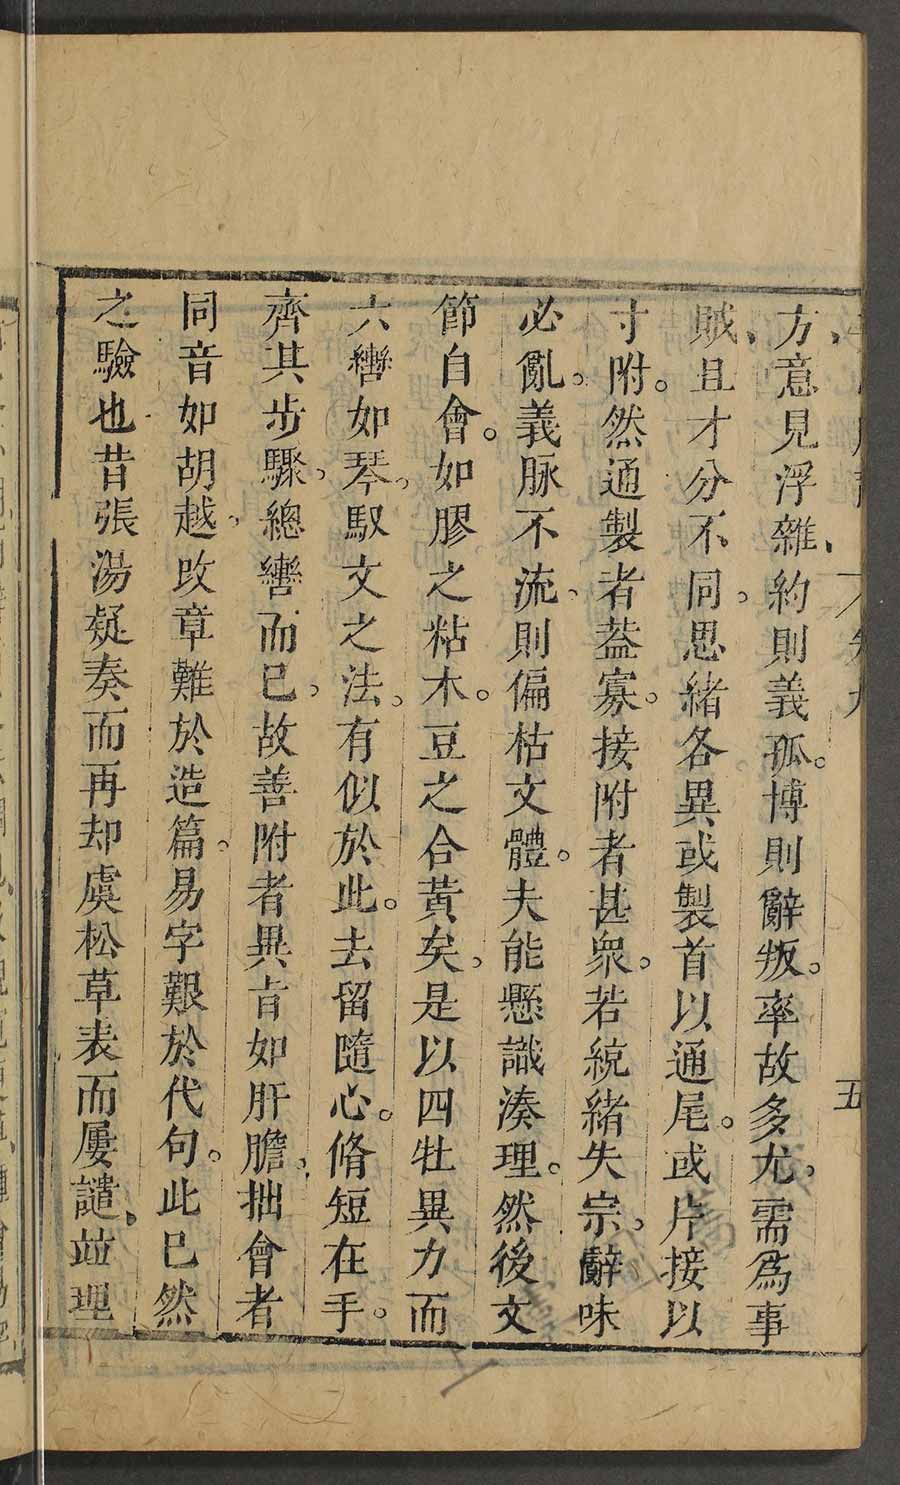 方、意見浮雜、約則義孤。博則辭叛。率故多尤。需爲事
賊、且才分不同。思緒各異或製首以通尾。或片接以
寸附。然通製者蓋寡。接附者甚衆。若統緒失宗。辭味
必亂。義脉不流。則偏枯文體。夫能懸識湊理。然後文
節自會。如膠之粘木。豆之合黃矣。是以四牡異力而
六轡如琴。馭文之法。有似於此。去留隨心。脩短在手。
齊其步驟。總轡而已。故善附者異旨如肝膽。拙會者
同音如胡越。改章難於造篇。易字艱於代句。此已然
之驗也昔張湯疑奏而再却虞松草表而屢譴。竝理
五